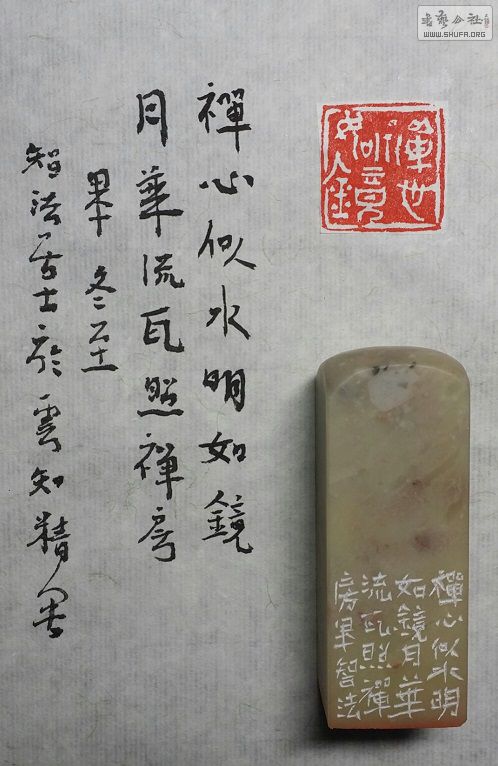 書藝公社
WWW.SHUFA.ORG
禪心似水明如鏡
月華流瓦照禪房
冬至
智法居士於雲知精舍
禪心似水明
如鏡月華
流瓦照禪
房智法